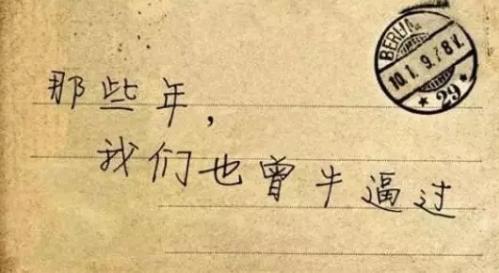 那些年，
我们也曾牛逼过
BERLIN
10.1.9.7 8V.
* 29 *